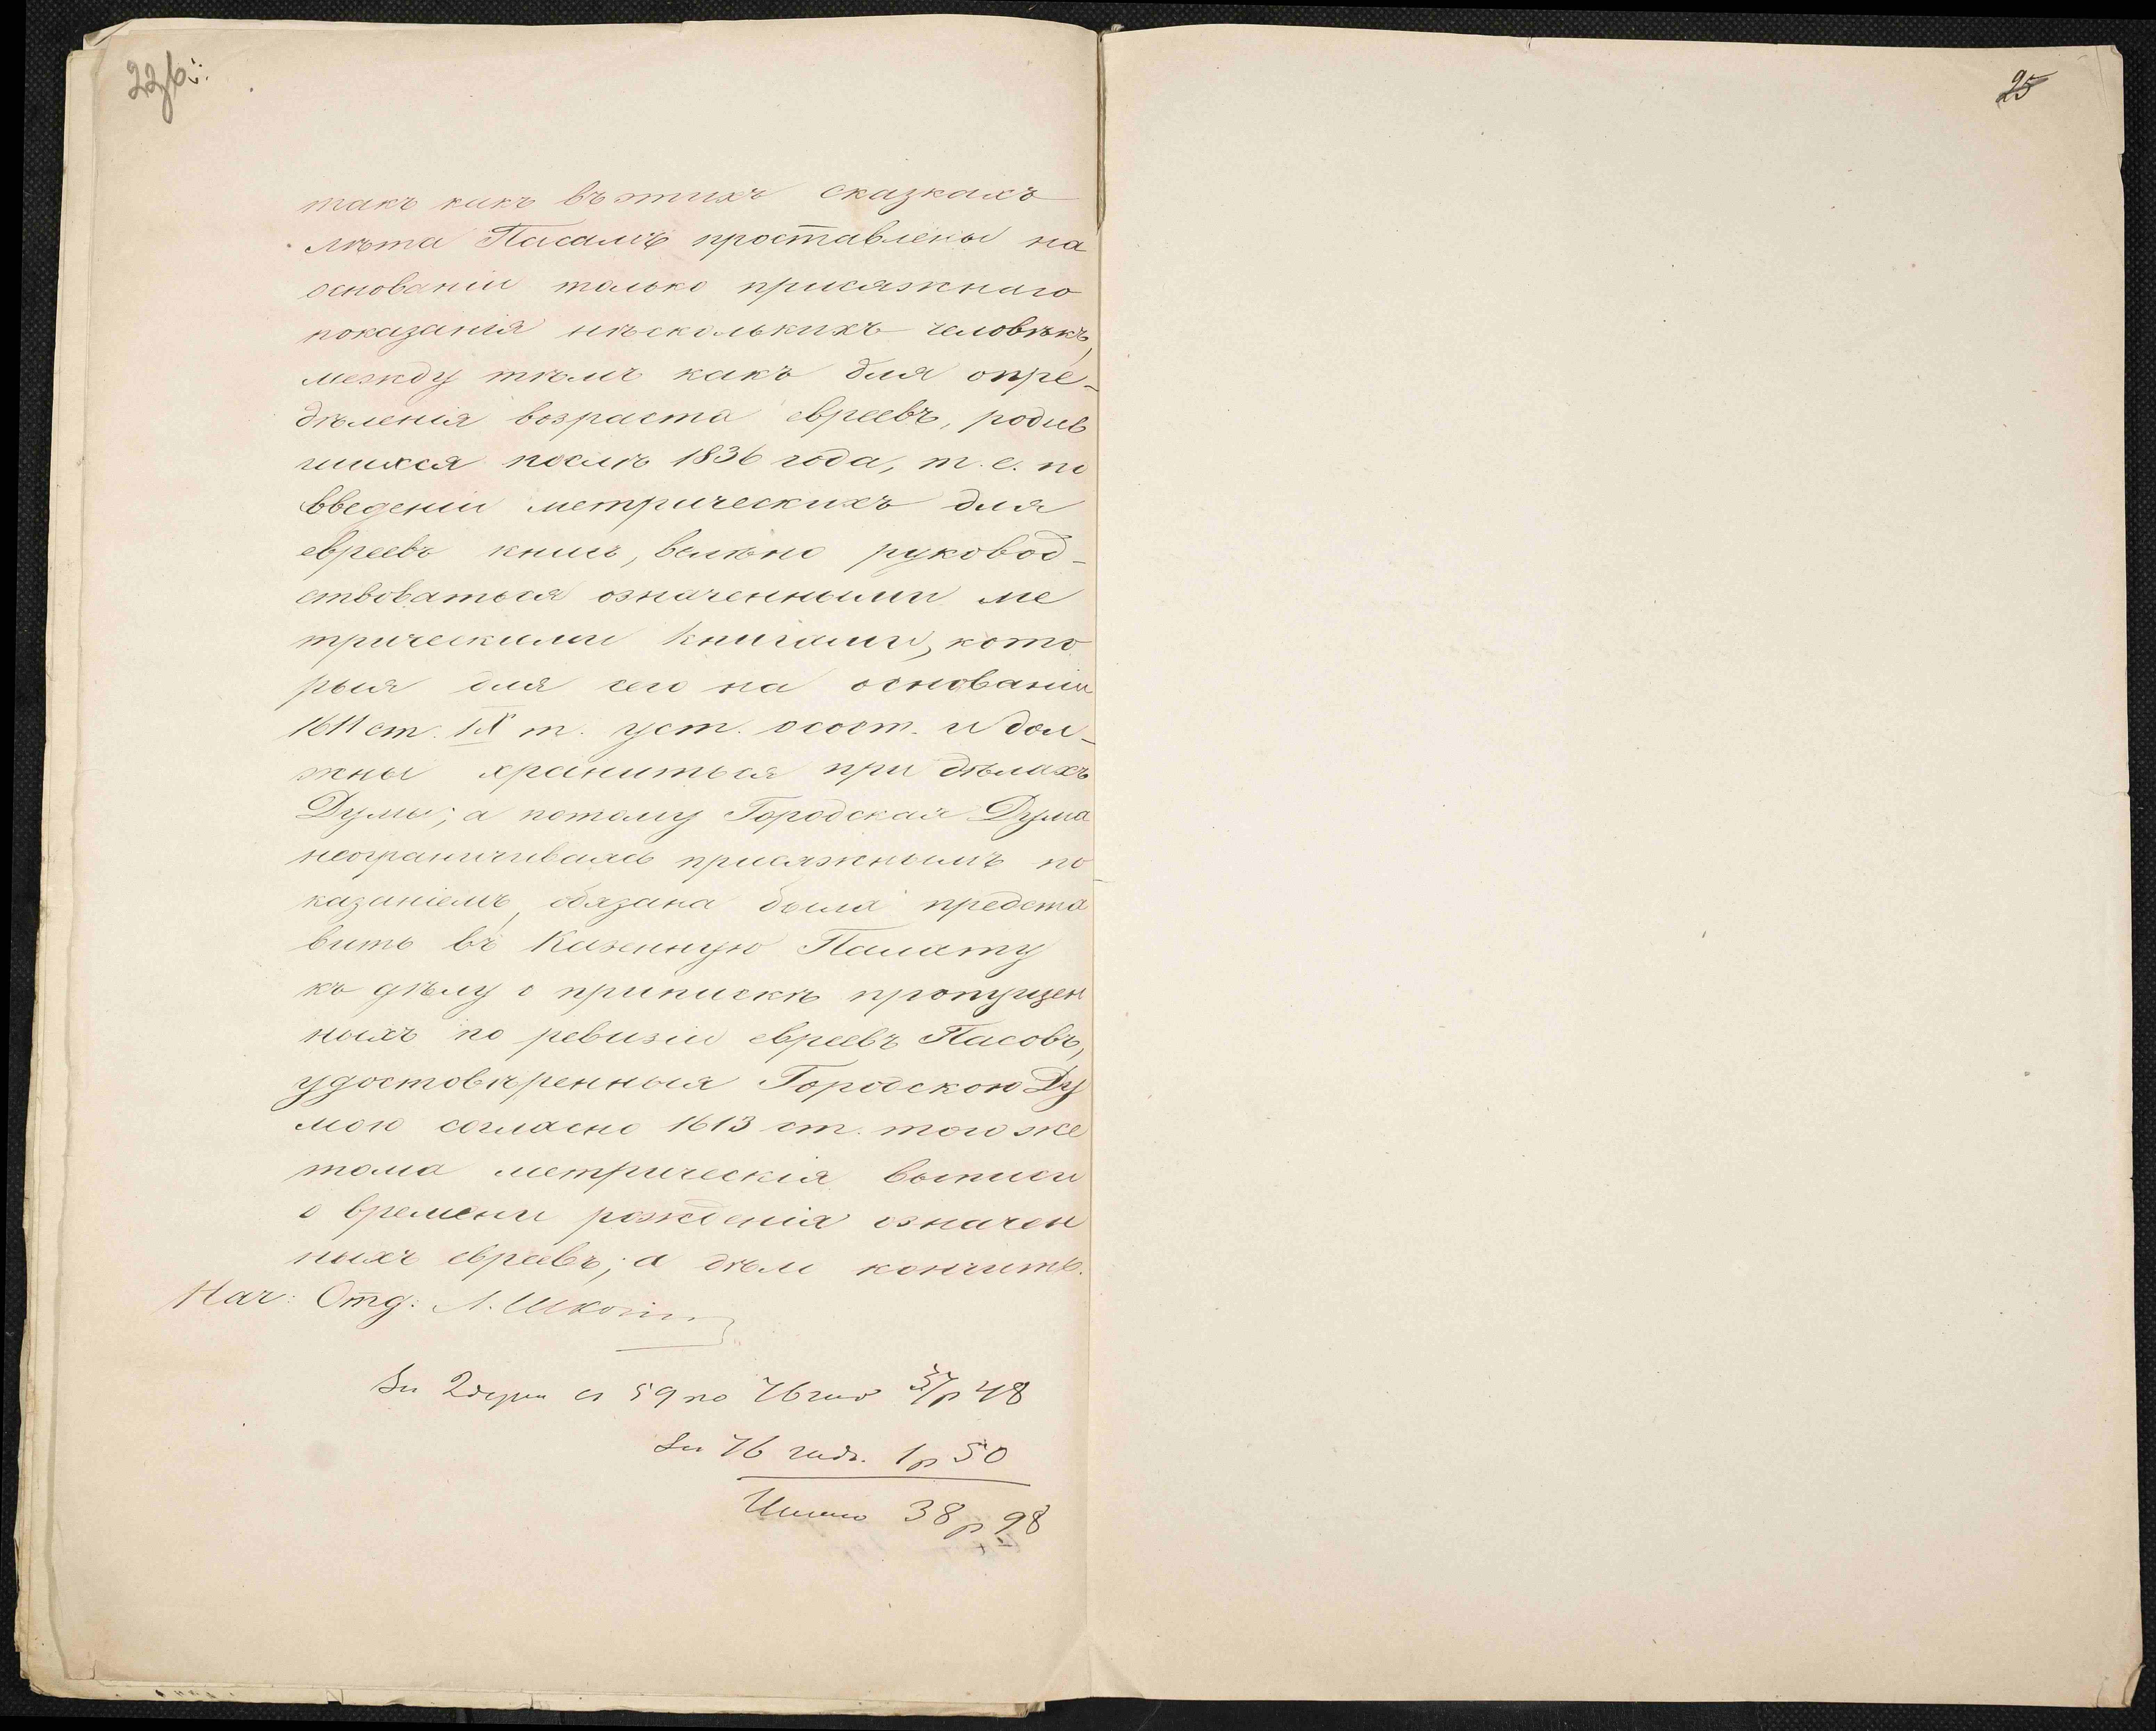 25
такъ какъ въ этихъ сказкахъ
лѣта Пасамъ проставлены на
основаніи только присяжнаго
показанія нѣсколькихъ человѣкъ,
между тѣмъ какъ для опре-
дѣленія возраста евреевъ, родив
шихся послѣ 1836 года, т. е. по
введеніи метрическихъ для
евреевъ книгъ, велѣно руковод-
ствоваться означенными ме
трическими книгами, кото
рыя для сего на основаніи
1611 ст. IX т. уст. о сост. и дол-
жны храниться при дѣлахъ
Думы; а потому Городская Дума
неограничиваясь присяжнымъ по-
казаніемъ, обязана была предста
вить въ Казенную Палату
къ дѣлу о припискѣ пропущен
ныхъ по ревизіи евреевъ Пасовъ,
удостовѣренныя Городскою Ду
мою согласно 1613 ст. того же
тома метрическія выписи
о времени рожденія означен
ныхъ евреевъ; а дѣло кончить.
Нач: Отд: Л.
За 2 души съ 59 по 76 годъ 37 р 48
За 76 годъ. 1 р 50
Итого 38 р 98